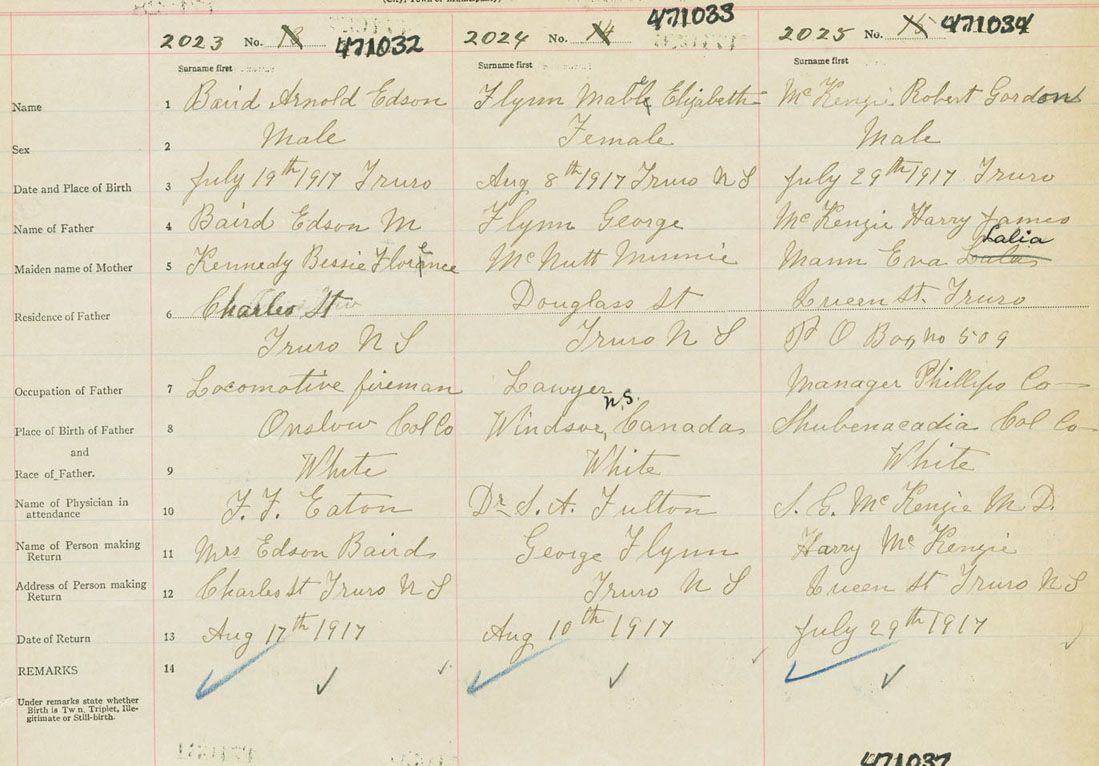 471033
2023 No. 13 471032 2024 No. 14 2025 No. 15 471034
Surname first Surname first Surname first
Name 1 Baird Arnold Edson Flynn Mable Elizabeth McKenzie Robert Gordon
Sex 2 Male Female Male
Date and Place of Birth 3 July 19th 1917 Truro Aug 8th 1917 Truro N S July 29th 1917 Truro
Name of Father 4 Baird Edson M Flynn George McKenzie Harry James
Lalia
Maiden name of Mother 5 Kennedy Bessie Florence McNutt Minnie Mann Eva
Residence of Father 6 Charles St Douglass St Queen St. Truro
Truro N S Truro N S P O Box no 509
Occupation of Father 7 Locomotive fireman Lawyer Manager Phillips Co
N.S.
Place of Birth of Father 8 Onslow Col Co Windsor, Canada Shubenacadia Col Co
and
Race of Father. 9 White White White
Name of Physician in attendance 10 F. F. Eaton Dr S. A. Fulton S. G. McKenzie M D.
Name of Person making Return 11 Mrs Edson Baird George Flynn Harry McKenzie
Address of Person making Return 12 Charles St Truro N S Truro N S Queen St Truro N S
Date of Return 13 Aug 17th 1917 Aug 10th 1917 July 29th 1917
REMARKS 14
Under remarks state whether
Birth is Twn, Triplet, Ille-
gitimate or Still-birth.
471037